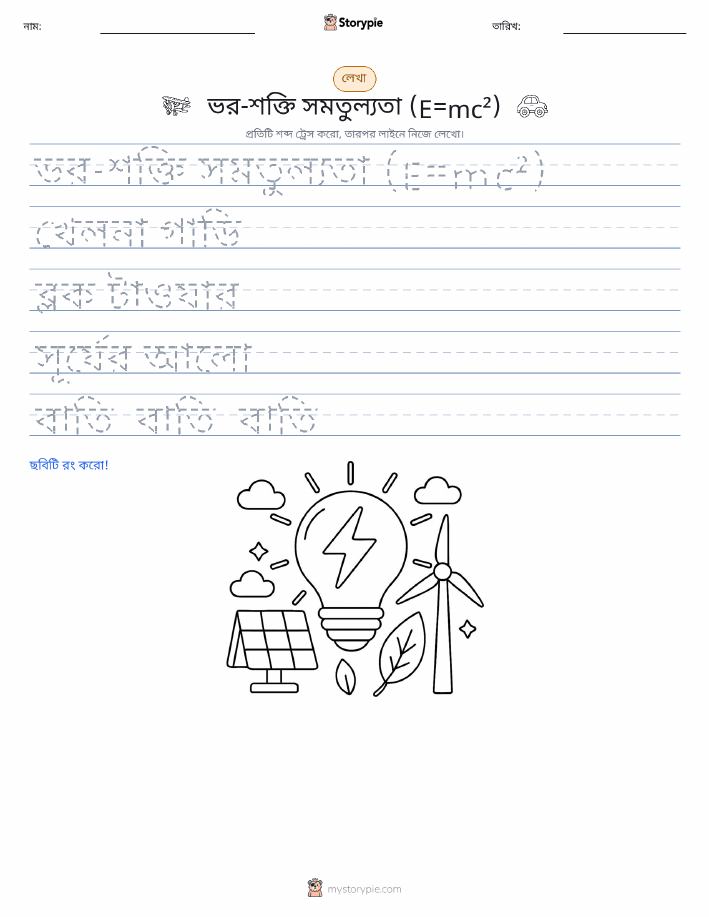 নাম:
Storypie
তারিখ:
লেখা
ভর-শক্তি সমতুল্যতা (E=mc²)
প্রতিটি শব্দ ট্রেস করো, তারপর লাইনে নিজে লেখো।
ভর-শক্তি সমতুল্যতা (E=mc²)
খেলনা গাড়ি
ব্লক টাওয়ার
সূর্যের আলো
বাতি বাতি বাতি
ছবিটি রং করো!
mystorypie.com